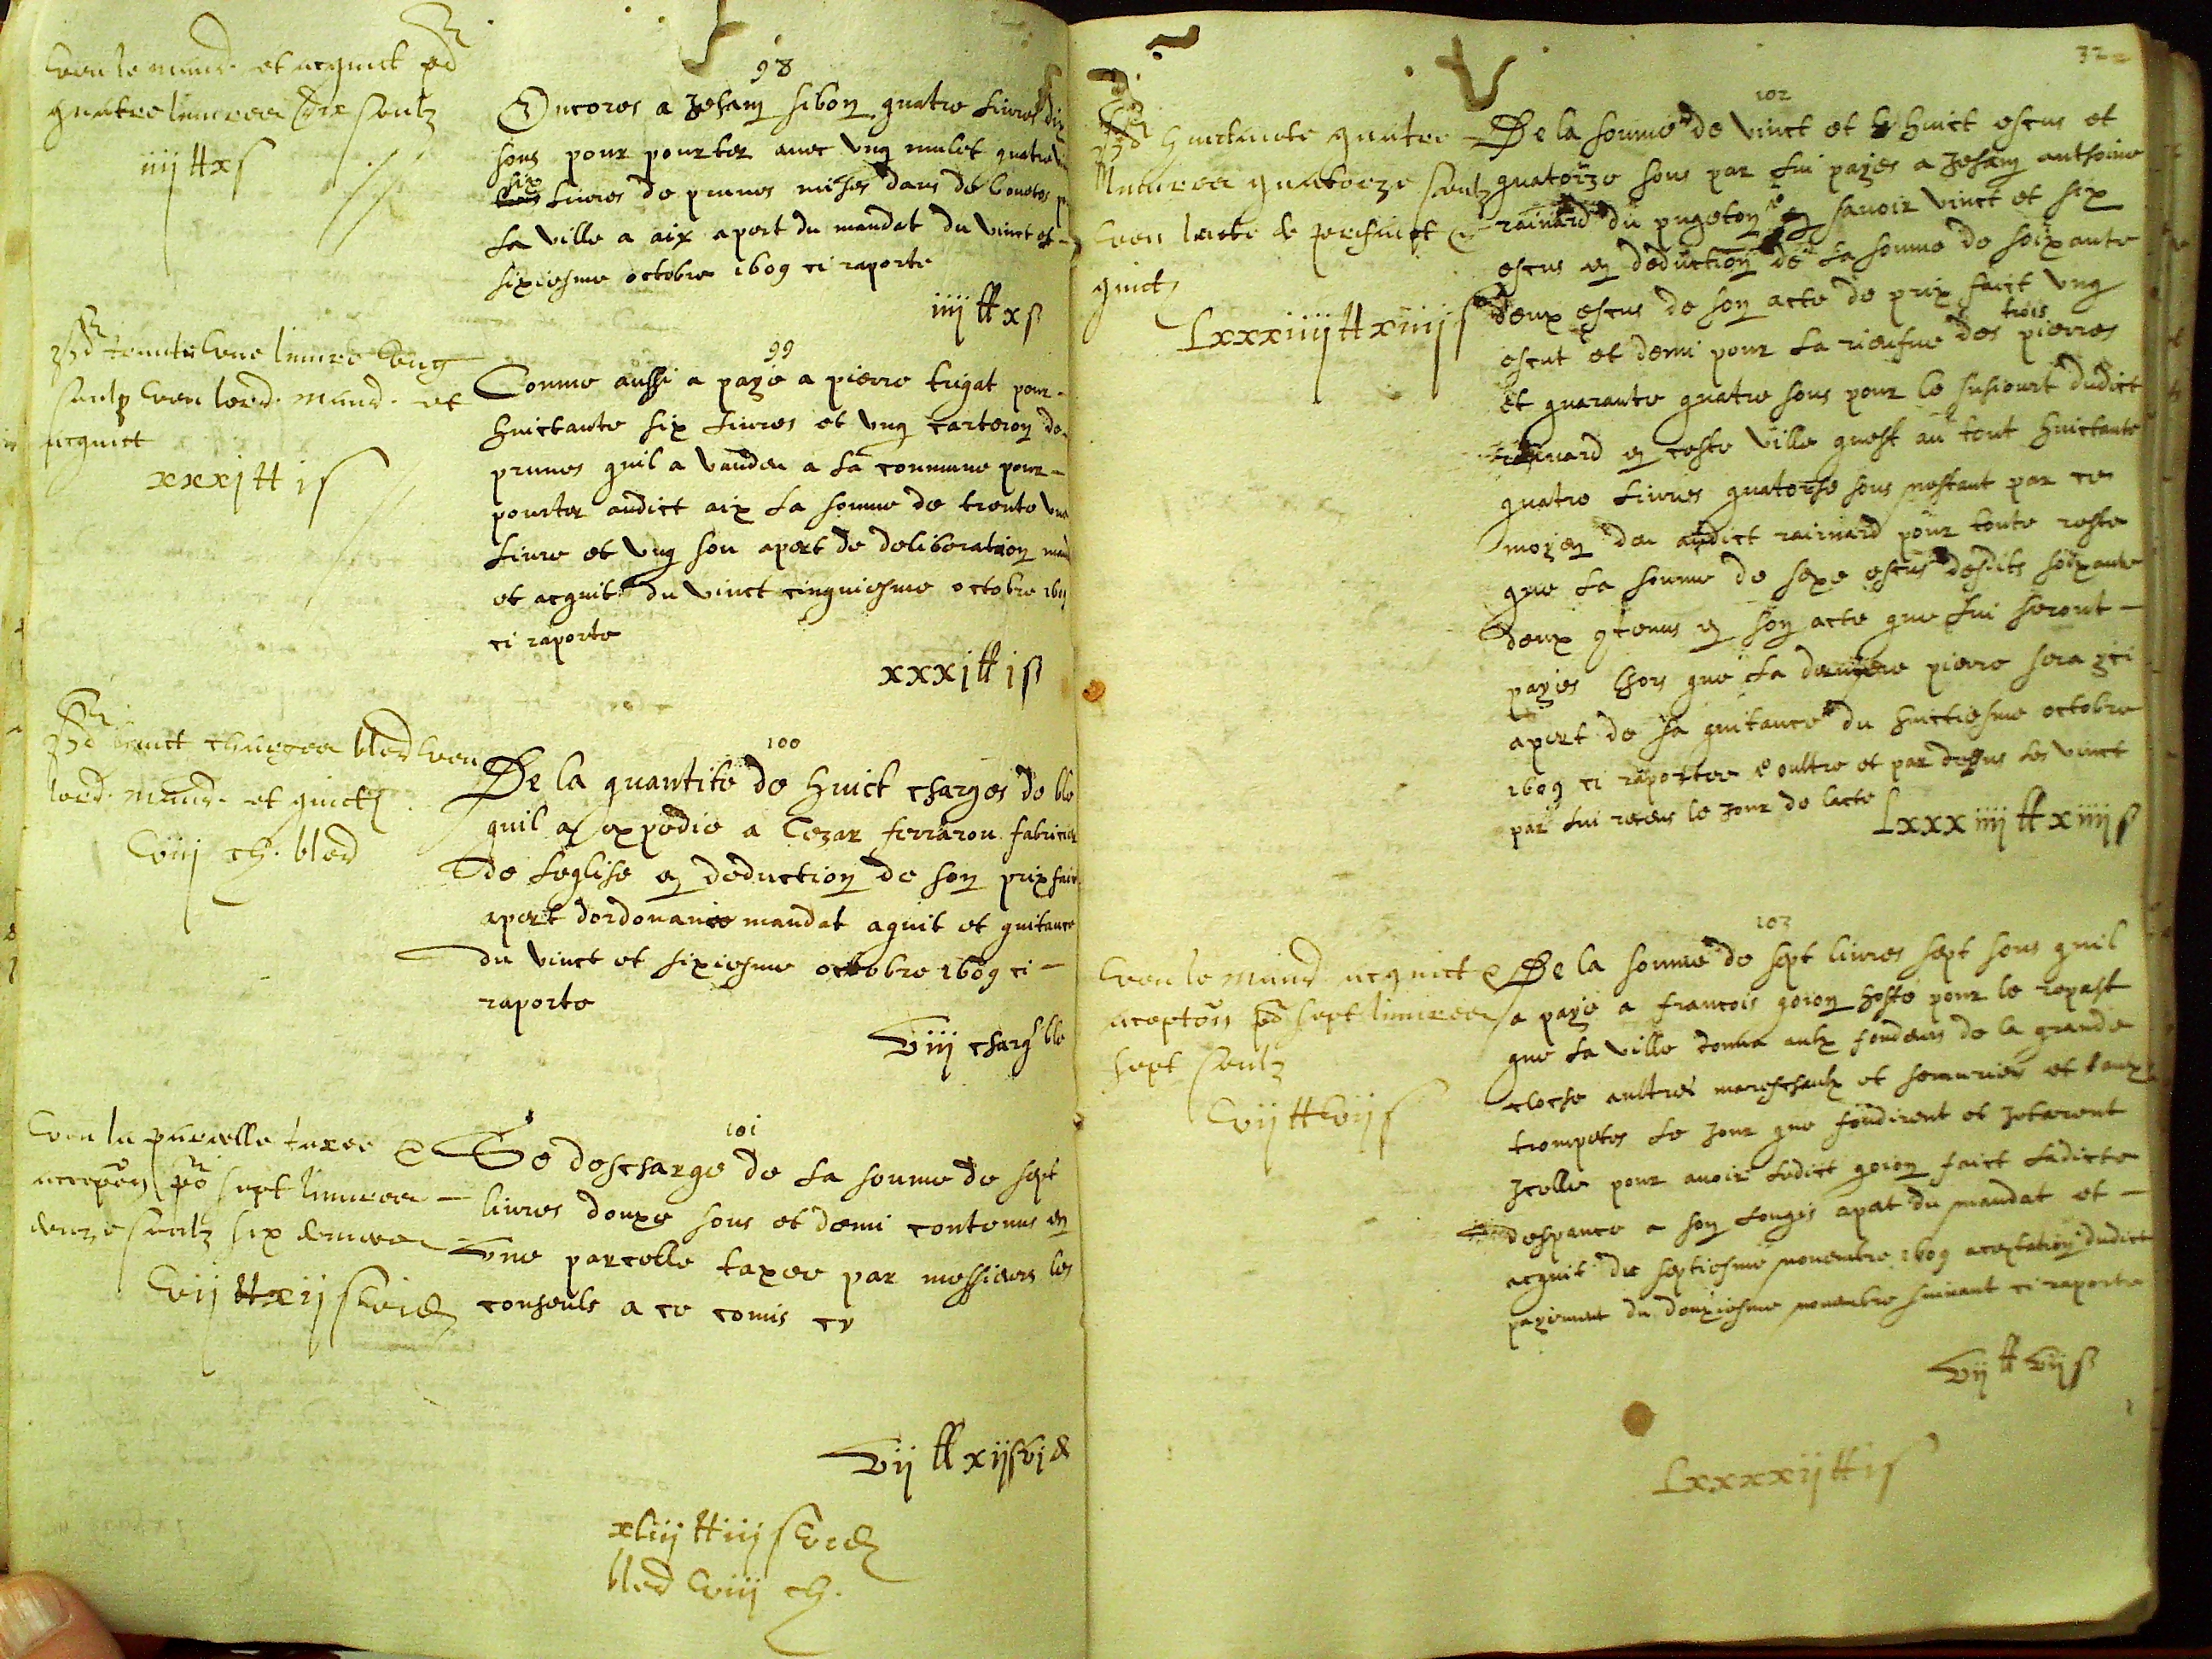 Veu le mand. et acquict
quatre livres dix soulz
iiij tt x s
98
Encores a Jehan sibon quatre livres dix
sous pour pourter avec ung mulet quatre
six
livres de prunes mises dans de
la ville a aix apert du mandat du vinct et
sixiesme octobre 1609 ci raporte
iiij tt x s
trante une livre ung
soulz veu lord. mand. et
acquict
xxxj tt j s
99
Comme aussi a paye a pierre trigat pour
huictante six livres et ung carteron de
prunes quil a vandeu a la commune pour
pourter audict aix la somme de trente une
livre et ung sou apert de deliberation mand
et acquit du vinct cinquiesme octobre
ci raporte
xxxj tt j s
huict charges bled veu
lord. mand. et quict
viij ch. bled
100
De la quantite de huict charges de ble
quil a expedie a Cezar ferrarou fabricien
de leglise en deduction de son prixfait
apert dordonance mandat aquit et quitance
du vinct et sixiesme octobre 1609 ci
raporte
viij charg ble
Veu la parcelle taxee &
acception sept livres
douze soulz six deniers
vij tt xij s vi d
101
Se descharge de la somme de sept
livres douxe sous et demi contenus en
une parcelle taxee par messieurs les
conseuls a ce comis cy
vij tt xij s vj d
xliij tt iij s vi d
bled viij ch.
32
huictante quatre
livres quatorze soulz
veu lacte de prixfaict &
quict
Lxxxiiij tt xiiij s
102
De la somme de vinct et huict escus et
quatorze sous par lui payes a Jehan anthoine
rainard du pugeton savoir vinct et six
escus en deduction de la somme de soixante
deux escus de son acte de prix faict ung
trois
escut et demi pour la des pierres
et quarante quatre sous pour le susiourt dudict
rainard en ceste ville quest au tout huictante
quatre livres quatorse sous nestant par ce
moyen deu audict rainard pour toute reste
que la somme de sexe escus desdits soixante
deux contenus en son acte que lui seront
payes lhors que la derniere pierre sera ici
apert de sa quitance du huictiesme octobre
1609 ci raportee & oultre et par dessus les vinct
par lui receus le jour de lacte
Lxxxiiij tt xiiij s
Veu le mand. acquict &
aception sept livres
sept soulz
vij tt vij s
103
De la somme de sept livres sept sous quil
a paye a francois goion hoste pour le repast
que la ville donna aulx fondeurs de la grande
cloche aultres mareschaulx et serruriers et
trompetes le jour que fondirent et jetarent
jcelle pour avoir ledict goion faict ladicte
despance a son lougis apert du mandat et
acquit du septiesme novembre 1609 aceptation dudict
payement du douxiesme novembre suivant ci raporte
vij tt vij s
Lxxxxij tt j s